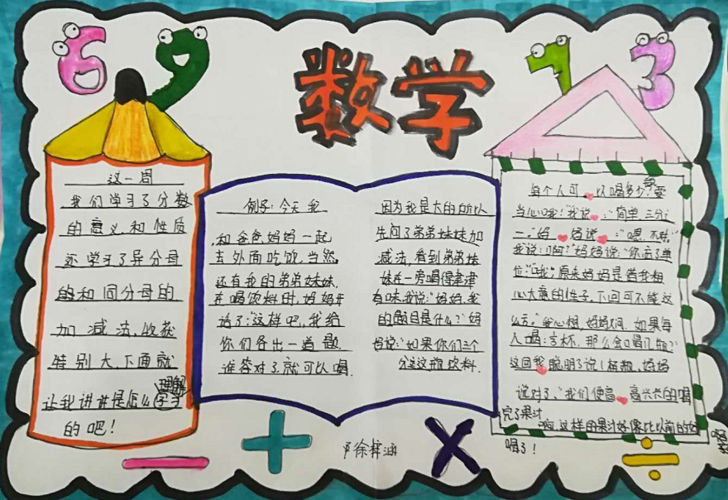 6 9
数学
7 3
这一周
我们学习了分数
的意义和性质
还学习了异分母
的和同分母的
加减法,收获
特别大,下面就
让我讲讲是怎么学习
的吧!
例子:今天我
和爸爸妈妈一起
去外面吃饭,当然
还有我的弟弟妹妹.
在喝饮料时,妈妈开
话了:"这样吧,我给
你们各出一道题
谁答对了就可以喝.
因为我是大的所以
先问了弟弟妹妹加
减法,看到弟弟妹
妹在一旁喝得津津
有味我说:"妈妈,我
的题目是什么?"妈
妈说:"如果你们三个
分这这瓶饮料.
每个人可以喝多少?要
当心哦!"我说:"简单,三分之
一."妈妈说:"嗯,不对."
我说:"啊?"妈妈说:"你忘了单
位"
心大意的性子,下回可不能这
么了."我心想,
这回我聪明了说1杯,妈妈
说对了,"我们便高高兴兴的喝
完了果汁
啊,这样的果汁好像比以前的好
喝了!
徐梓涵